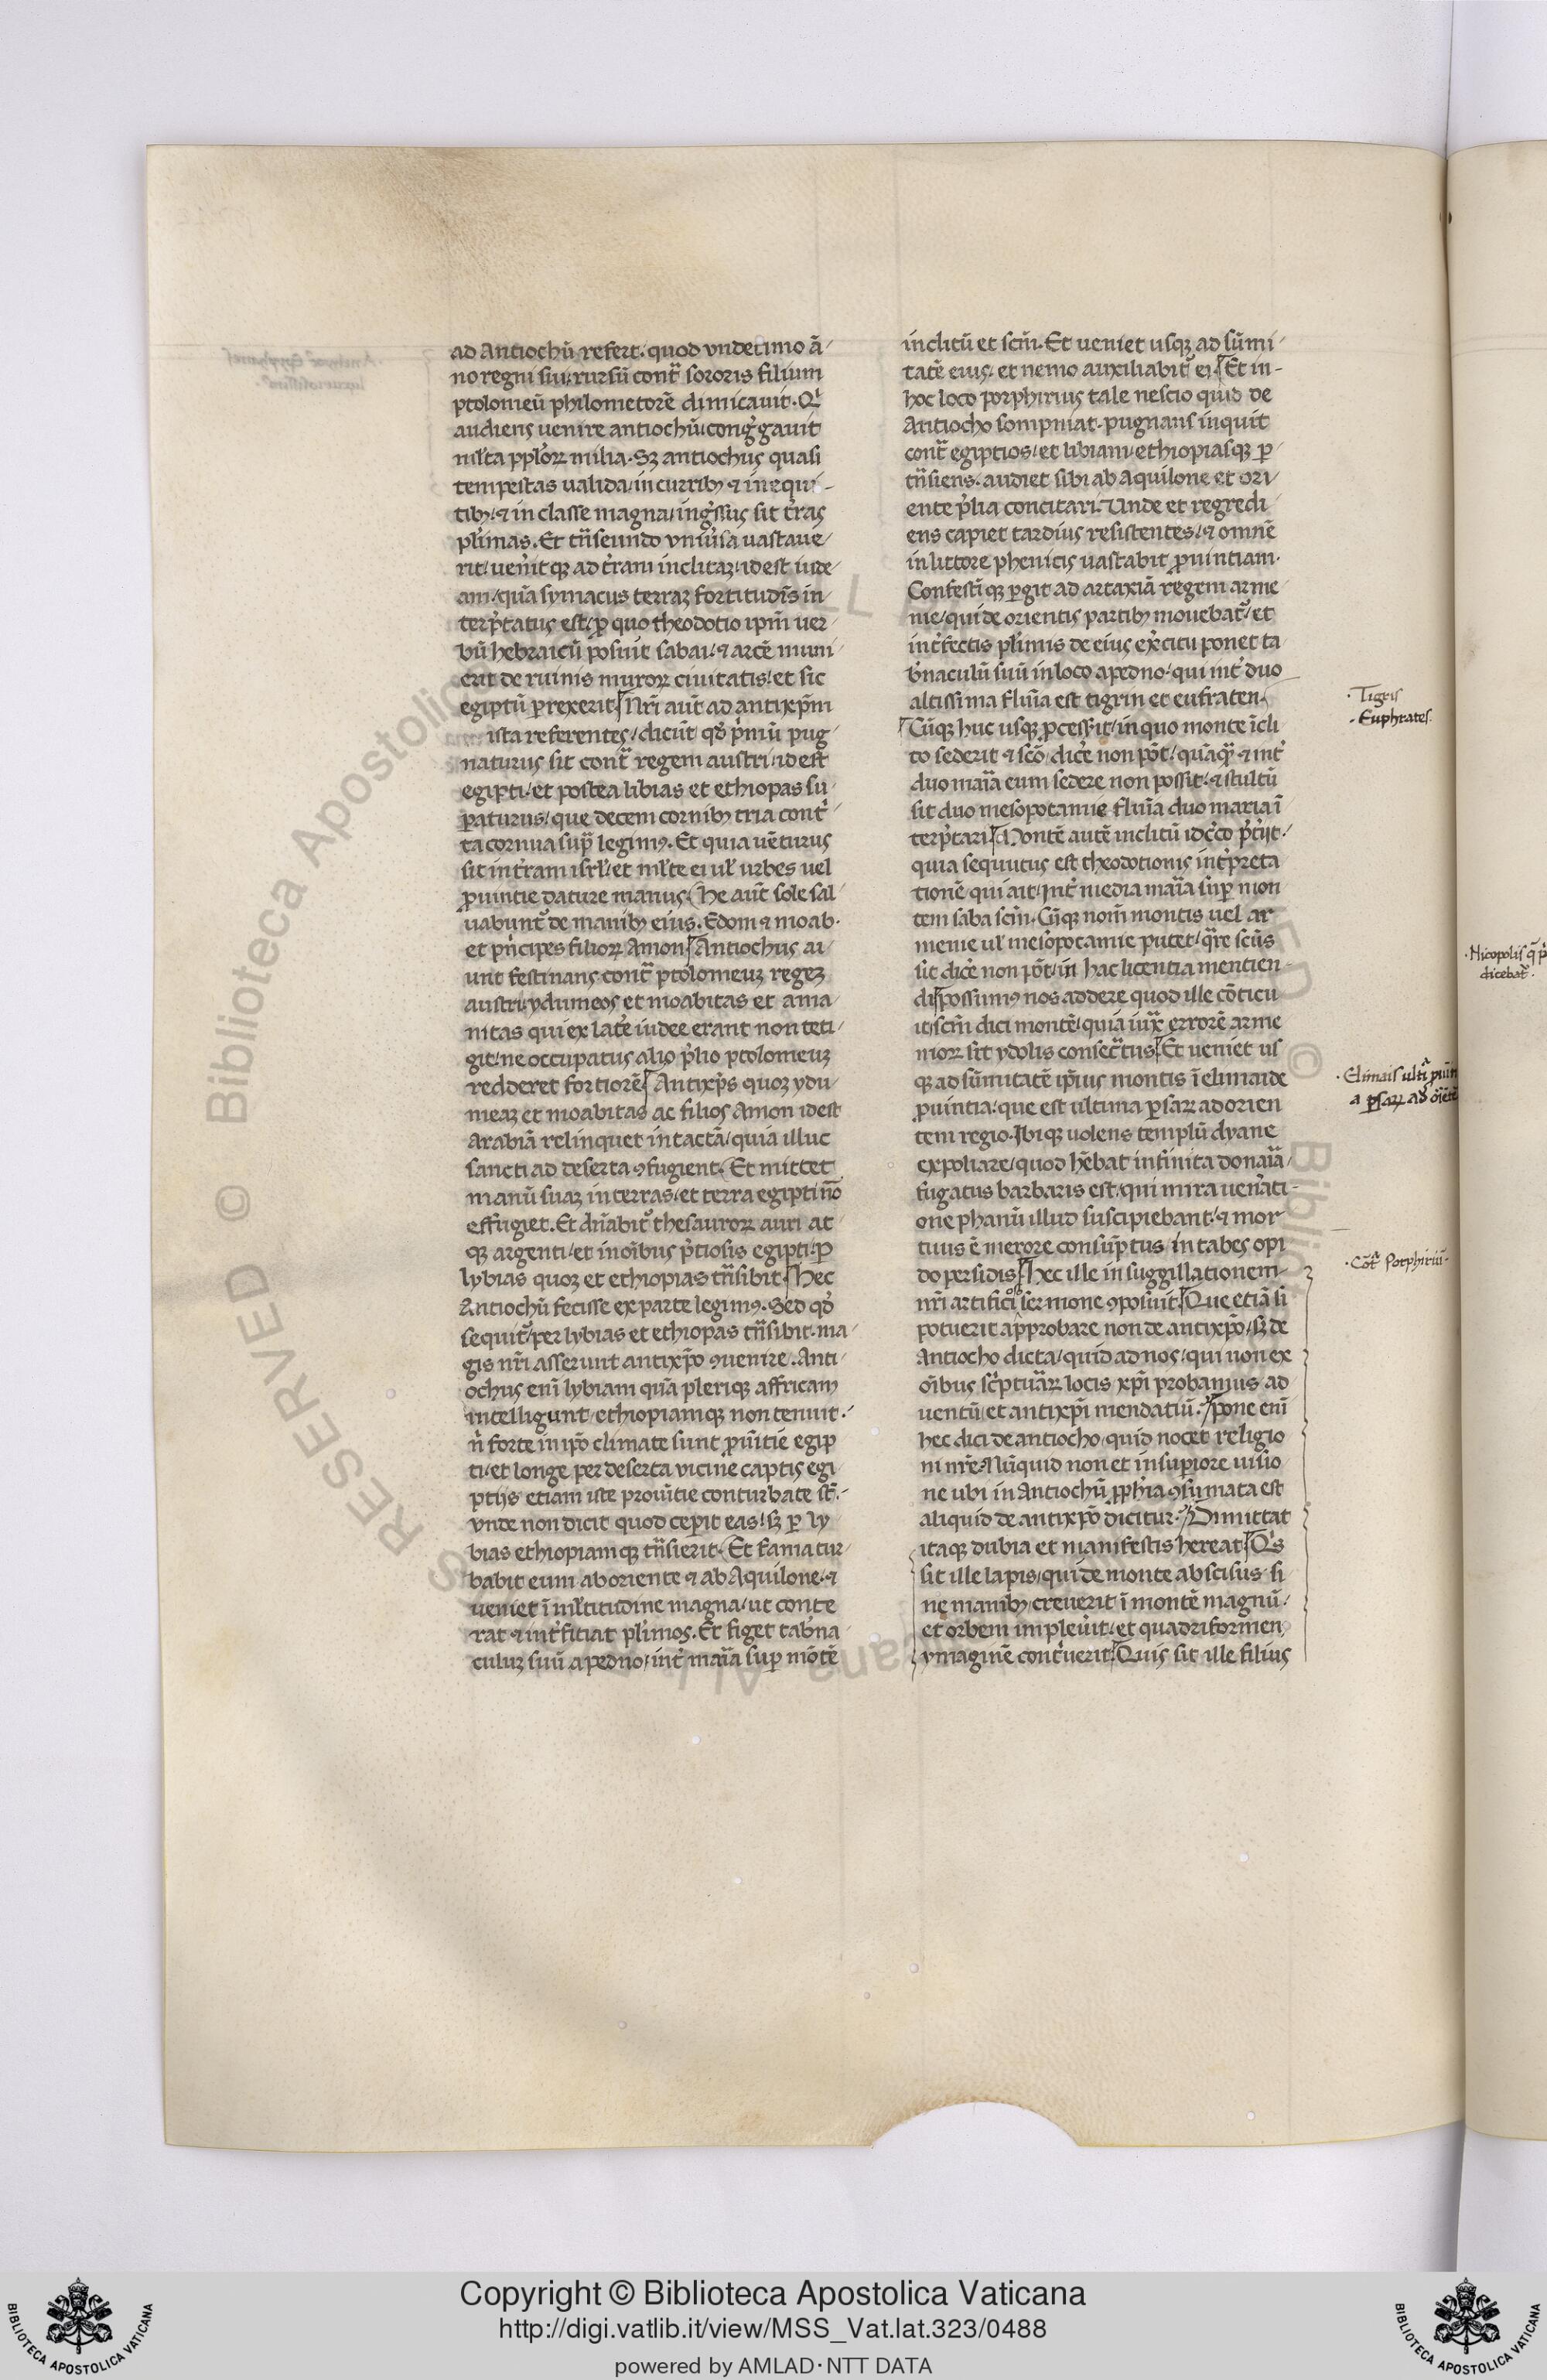 ad Antiochū refert. quod vndecimo ā/
no regni sui/rursū contᷓ sororis filium
ptolomeū philometorē dimicauit. Qͥ
audiens uenire antiochū/congͤgauit
ml̄ta ppl̓oꝝ milia. Sꝫ antiochus quasi
tempestas ualida/in curribꝫ ⁊ in equi/
tibꝫ/⁊ in classe magna/ingͤssus sit tr̓as
pl̓imas. Et tn̄seundo vniu̓sa uastaue/
rit/uen̓itqꝫ ad tr̓am inclitaꝫ/id est iude/
am/quā symacus terraꝫ fortitudīs in/
terp̓tatus est/ꝓ quo theodotio ip̄m uer/
bū hebraicū posuit sabai/⁊ arcē muni/
erit de ruinis muroꝝ ciuitatis/et sic
egiptū ꝑrexerit ¶Nr̄i aut̄ ad antixp̄m
ista referentes/dicūt qd̓ pͥmū pug
naturus sit contᷓ regem austri/id est
egipti/et postea libias et ethiopas su/
ꝑaturus/que decem cornibꝫ tria contͥ/
ta cornua supᷓ legimꝰ. Et quia uēturus
sit in tr̓am isrl̓/et ml̄te ei ul̓ urbes uel
ꝓuintie dature manus. He aut̄ sole sal/
uabuntᷣ de manibꝫ eius. Edom ⁊ moab.
et pn̓cipes filioꝝ Amon ¶Antiochus ai/
unt festinans contᷓ ptolomeuꝫ regeꝫ
austri/ydumeos et moabitas et ama/
nitas qui ex lat̓e iudee erant non teti/
git/ne occupatus alio p̓lio ptolomeuꝫ
redderet fortiorē ¶Antixp̄s quoꝫ ydu/
meaꝫ et moabitas ac filios Amon id est
Arabiā relinquet intactā/quia illuc
sancti ad deserta ꝯfugient. Et mittet
manū suaꝫ in terras/et terra egipti nō
effugiet. Et dn̄abitᷣ thesauroꝝ auri at
qꝫ argenti/et in oībus p̓tiosis egipti. Ꝑ
lybias quoꝫ et ethiopias tn̄sibit. ¶Hec
Antiochū fecisse ex parte legimꝰ. Sed qd̓
sequitᷣ/per lybias et ethiopas tn̄sibit. ma/
gis nr̄i asserunt antixp̄o ꝯuenire. Anti/
ochus enī lybiam quā plerique affricam
intelligunt/ethiopiamqꝫ non tenuit/
n̓ forte in ip̄o climate sunt ꝓuītie egip
ti/et longe per deserta vicine captis egi
ptijs etiam iste prouītie conturbate st̄/
vnde non dicit quod ceperit eas/sꝫ ꝑ ly
bias ethiopiamqꝫ tn̄sierit. Et fama tur/
babit eum ab oriente ⁊ ab Aquilone/⁊
ueniet ī ml̄titudine magna/ut conte
rat ⁊ int̓ficiat pl̓imos. Et figet tab̓na
culuꝫ suū apedno/int̓ maīa suꝑ mōtē
inclitū et scm̄. Et ueniet usqꝫ ad sūmi/
tatē eius/et nemo auxiliabitᷣ ei ¶Et in
hoc loco porphirius tale nescio quid de
Antiocho sompniat. pugnans inquit
contᷓ egiptios/et libiam/ethiopiasqꝫ ꝑ
tn̄siens. audiet sibi ab Aquilone et ori/
ente p̓lia concitari. Unde et regredi
ens capiet tardius resistentes/⁊ omnē
in littore phenicis uastabit ꝓuintiam.
Confestīqꝫ ꝑgit ad artaxiā regem arme/
nie/qui de orientis partibꝫ mouebatᷣ/et
int̓fectis pl̓imis de eius ex̓citu ponet ta
b̓naculū suū in loco apedno/qui int̓ duo
altissima fluīa est tigrin et eufraten.
¶Cūqꝫ huc usqꝫ ꝓcesserit/in quo monte īcli
to sederit ⁊ scō/dic̓e non pōt/quāqᷓ ⁊ int̓
duo maīa eum sedere non possit/⁊ stultū
sit duo mesopotamie fluīa duo maria ī
terp̓tari ¶Montē autē inclitū idc̓co p̓t̓ijt/
quia sequutus est theodotionis int̓preta
tionē/qui ait/int̓ media maīa suꝑ mon
tem saba scm̄. Cūqꝫ nom̄ montis uel ar
menie ul̓ mesopotamie putet/qᷓre scūs
sit dic̓e non pōt/in hac licentia mentien
di ¶possumꝰ nos addere quod ille cōticu
it/scm̄ dici montē/quia iuxᷓ errorē arme
nioꝝ sit ydolis consecᷓtus ¶Et ueniet us
qꝫ ad sūmitatē ip̄ius montis ī elimaide
ꝓuintia/que est ultima ꝑsaꝝ ad orien
tem regio. Ibiqꝫ uolens templū dyane
expoliare/quod hēbat infinita donaīa/
fugatus barbaris est/qui mira uen̓ati/
one phanū illud suscipiebant/⁊ mor
tuus ē merore consūptus in tabes opi
do persidis ¶Hec ille in suggillationem
nr̄i artificioso sermone ꝯposuit ¶Que etiā si
potuerit approbare non de antixp̄o/sꝫ de
Antiocho dicta/quid ad nos/qui non ex
oībus sc̓ptuᷓꝝ locis xp̄i probamus ad
uentū/et antixp̄i mendatiū. ¶pone enī
hec dici de antiocho/quid nocet religio
ni nr̄e/Nūquid non et in suꝑiore uisio
ne ubi in Antiochū ꝓph̓ia ꝯsūmata est
aliquid de antixp̄o dicitur. ¶Dimittat
itaqꝫ dubia et manifestis hereat ¶Qͥs
sit ille lapis/qui de monte abscisus si
ne manibꝫ/creuerit ī montē magnū/
et orbem impleu̓it/et quadriformen
ymaginē contͥuerit ¶Quis sit ille filius
· Tigris
· Euphrates.
· Nicopolis
dicebatᷣ.
· Elimais
· Cōtᷓ Porphiriū ·
Copyright © Biblioteca Apostolica Vaticana
http://digi.vatlib.it/view/MSS_Vat.lat.323/0488
powered by AMLAD·NTT DATA
BIBLIOTECA APOSTOLICA VATICANA
BIBLIOTECA APOSTOLICA VATICANA